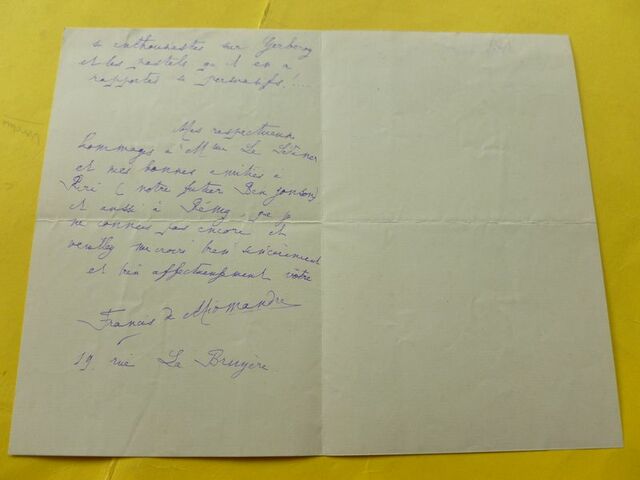 si enthousiastes sur Gerberoy
et les pastels qu'il en a
rapportés si persuasifs !....
Mes respectueux
hommages à Mme Le Sidaner
et mes bonnes amitiés à
(notre futur Ben Jonson)
et aussi à Rémy, que je
ne connais pas encore et
veuillez me croire bien sincèrement
et bien affectueusement vôtre
Francis de Miomandre
19 rue La Bruyère